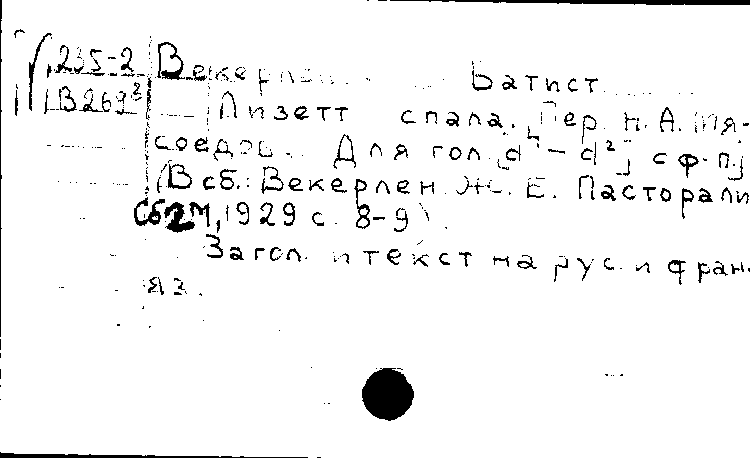 235-2 Векерлен Батист
В269³ Лизетт спала. [Пер. Н. А. Мя-
соедов. Для гол. [d¹-d²] с ф.п.]
(В сб.: Векерлен Ж. Б. Пасторали
Сб2 М, 1929 с. 8-9).
Загол. и текст на рус. и фран.
яз.